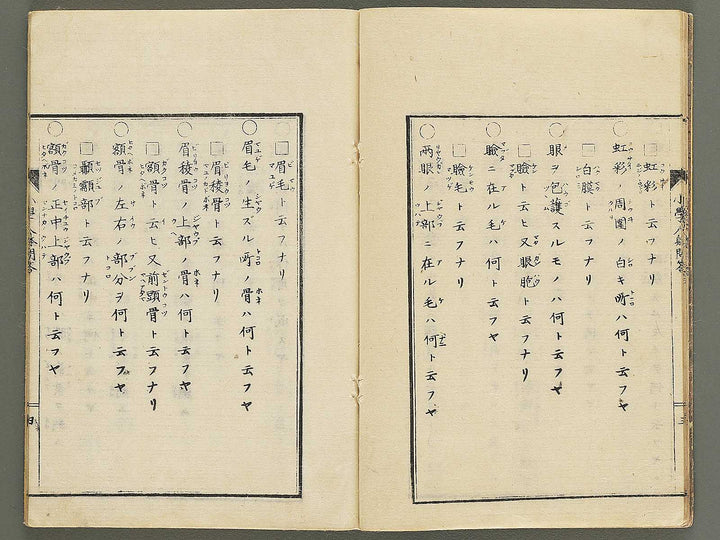 □虹彩ト云フナリ
○虹彩ノ周圍ノ白キ所ハ何ト云フヤ
□白膜ト云フナリ
○眼ヲ包護スルモノハ何ト云フヤ
□瞼ト云ヒ又眼胞ト云フナリ
○瞼ニ在ル毛ハ何ト云フヤ
□瞼毛ト云フナリ
○兩眼ノ上部ニ在ル毛ハ何ト云フヤ
□眉毛ト云フナリ
○眉毛ノ生スル所ノ骨ハ何ト云フヤ
□眉稜骨ト云フナリ
○眉稜骨ノ上部ノ骨ハ何ト云フヤ
□額骨ト云ヒ又前頭骨ト云フナリ
○額骨ノ左右ノ部分ヲ何ト云フヤ
□顳顬部ト云フナリ
○額骨ノ正中上部ハ何ト云フヤ